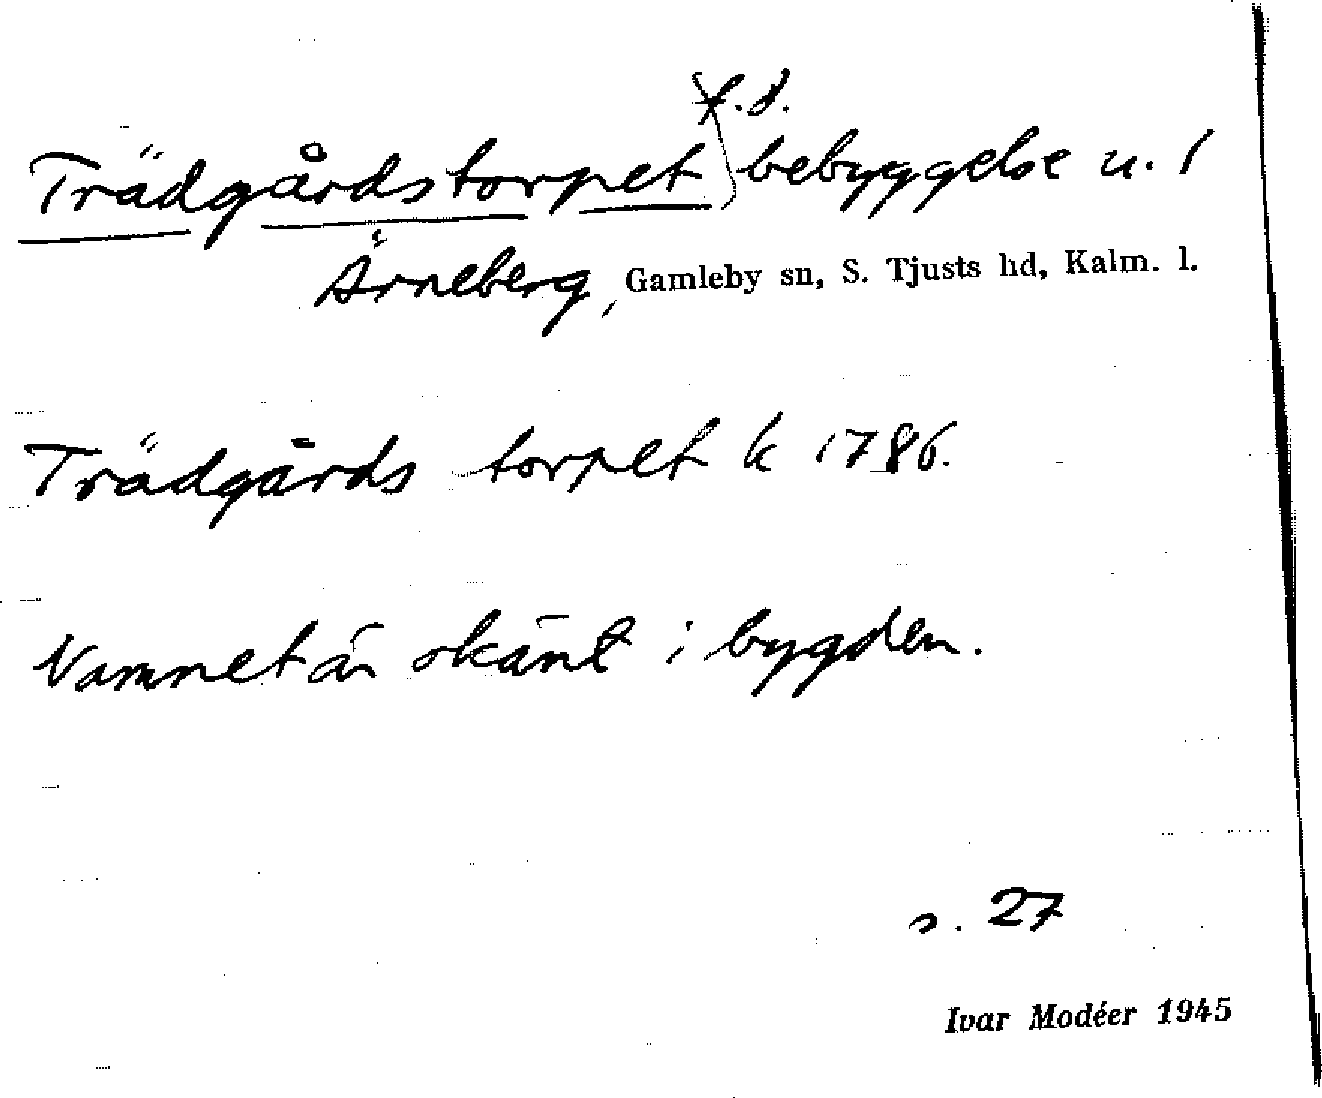 Trädgårdstorpet f.d. bebyggelse u. 1
Ärneberg, Gamleby sn, S. Tjusts hd, Kalm. l.
Trädgårds torpet k 1786.
Namnet är okänt i bygden.
s. 27
Ivar Modéer 1945